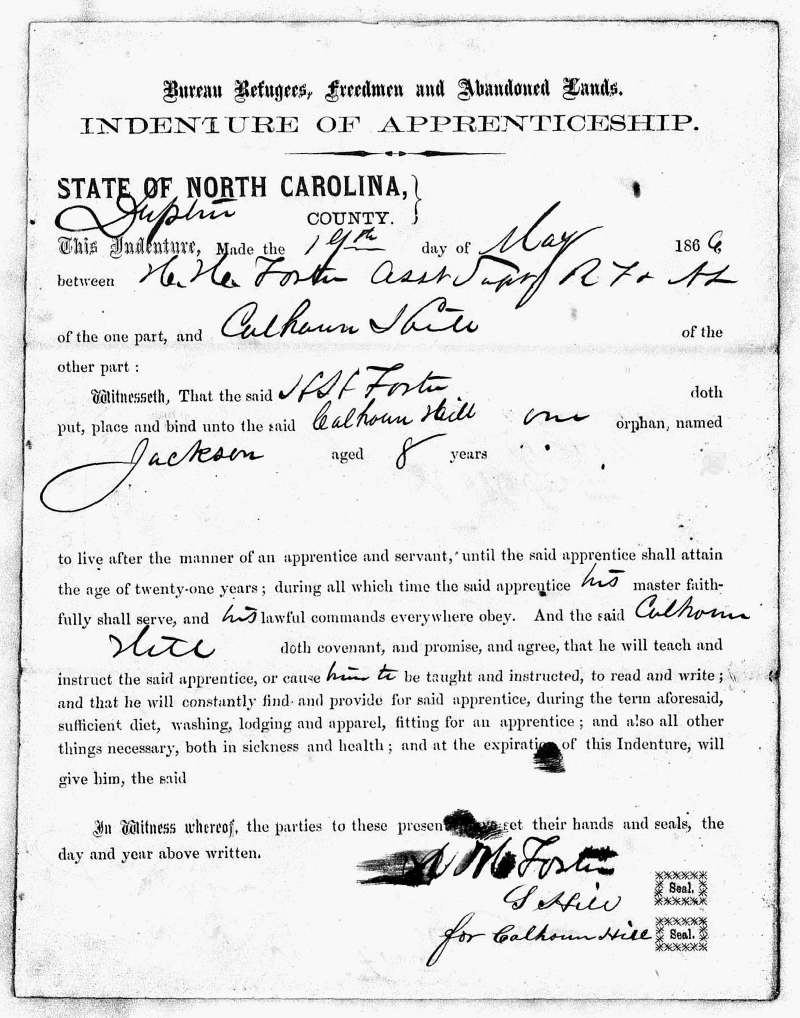 Bureau Refugees, Freedmen and Abandoned Lands.
INDENTURE OF APPRENTICESHIP.
STATE OF NORTH CAROLINA,
Duplin COUNTY.
This Indenture, Made the 19th day of May 1866
between H. H. Foster Asst Supt R F & AL
of the one part, and Calhoun Hill of the
other part :
Witnesseth, That the said H H Foster doth
put, place and bind unto the said Calhoun Hill one orphan, named
Jackson aged 8 years
to live after the manner of an apprentice and servant, until the said apprentice shall attain
the age of twenty-one years ; during all which time the said apprentice his master faith-
fully shall serve, and his lawful commands everywhere obey. And the said Calhoun
Hill doth covenant, and promise, and agree, that he will teach and
instruct the said apprentice, or cause him to be taught and instructed, to read and write ;
and that he will constantly find and provide for said apprentice, during the term aforesaid,
sufficient diet, washing, lodging and apparel, fitting for an apprentice ; and also all other
things necessary, both in sickness and health ; and at the expiration of this Indenture, will
give him, the said
In Witness whereof, the parties to these presents have set their hands and seals, the
day and year above written.
Foster
Seal.
S Hill
for Calhoun Hill Seal.